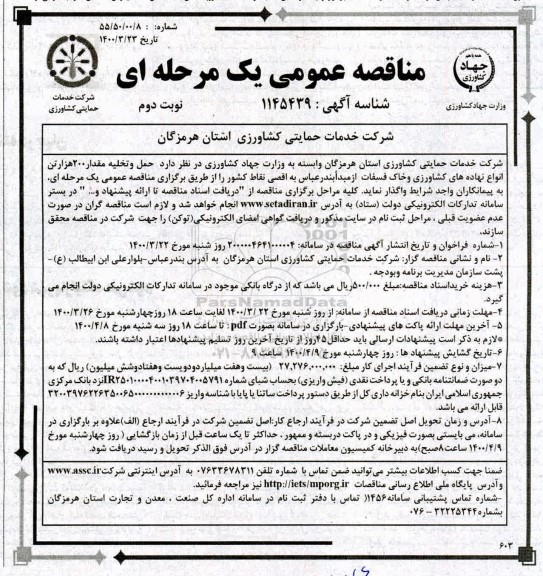 شماره: ۵۵/۵۰/۰۰/۸
تاریخ ۱۴۰۰/۳/۲۳
شرکت خدمات حمایتی کشاورزی
جهاد کشاورزی
وزارت جهاد کشاورزی
مناقصه عمومی یک مرحله ای
شناسه آگهی : ۱۱۴۵۴۳۹
نوبت دوم
شرکت خدمات حمایتی کشاورزی استان هرمزگان
شرکت خدمات حمایتی کشاورزی استان هرمزگان وابسته به وزارت جهاد کشاورزی در نظر دارد حمل وتخلیه مقدار۲۰۰هزارتن
انواع نهاده های کشاورزی وخاک فسفات ازمبدأبندرعباس به اقصی نقاط کشور را از طریق برگزاری مناقصه عمومی یک مرحله ای،
به پیمانکاران واجد شرایط واگذار نماید. کلیه مراحل برگزاری مناقصه از "دریافت اسناد مناقصه تا ارائه پیشنهاد و... " در بستر
سامانه تدارکات الکترونیکی دولت (ستاد) به آدرس www.setadiran.ir انجام خواهد شد و لازم است مناقصه گران در صورت
عدم عضویت قبلی ، مراحل ثبت نام در سایت مذکور و دریافت گواهی امضای الکترونیکی(توکن) را جهت شرکت در مناقصه محقق
سازند.
۱-شماره فراخوان و تاریخ انتشار آگهی مناقصه در سامانه: ۲۰۰۰۰۰۴۶۴۱۰۰۰۰۰۴ روز شنبه مورخ ۱۴۰۰/۳/۲۲
۲- نام و نشانی مناقصه گزار: شرکت خدمات حمایتی کشاورزی استان هرمزگان به آدرس بندرعباس-بلوارعلی ابن ابیطالب (ع)-
پشت سازمان مدیریت برنامه وبودجه .
۳-هزینه خریداسناد مناقصه:مبلغ ۵۰۰/۰۰۰ریال می باشد که از درگاه بانکی موجود در سامانه تدارکات الکترونیکی دولت انجام می
گیرد.
۴-مهلت زمانی دریافت اسناد مناقصه از سامانه: از روز شنبه مورخ ۱۴۰۰/۳/۲۲ لغایت ساعت ۱۸ روزچهارشنبه مورخ ۱۴۰۰/۳/۲۶
۵- آخرین مهلت ارائه پاکت های پیشنهادی-بارگزاری در سامانه بصورت pdf : تا ساعت ۱۸ روز سه شنبه مورخ ۱۴۰۰/۴/۸
*لازم به ذکر است پیشنهادات ارسالی باید حداقل۴۵روز از تاریخ آخرین روز تسلیم پیشنهادها اعتبار داشته باشند.
۶-تاریخ گشایش پیشنهاد ها : روز چهارشنبه مورخ ۱۴۰۰/۴/۹ ساعت ۹
۷-میزان و نوع تضمین فرآیند اجرای کار مبلغ: ۲۷,۲۷۶,۰۰۰,۰۰۰ (بیست وهفت میلیاردودویست وهفتادوشش میلیون) ریال که به
دو صورت ضمانتنامه بانکی و یا پرداخت نقدی (فیش واریزی) بحساب شبای شماره
جمهوری اسلامی ایران بنام خزانه داری کل از طریق دستور پرداخت ساتنا یا پایا با شناسه واریز
قابل ارائه می باشد.
۸-آدرس و زمان تحویل اصل تضمین شرکت در فرآیند ارجاع کار:اصل تضمین شرکت در فرآیند ارجاع (الف)علاوه بر بارگزاری در
سامانه، می بایستی بصورت فیزیکی و در پاکت دربسته و ممهور، حداکثر تا یک ساعت قبل از زمان بازگشایی ( روز چهارشنبه مورخ
۱۴۰۰/۴/۹ ساعت۸صبح)به دبیرخانه کمیسیون معاملات مناقصه گزار در آدرس فوق الذکر تحویل و رسید دریافت شود.
ضمنا جهت کسب اطلاعات بیشتر می توانید ضمن تماس با شماره تلفن ۰۷۶۳۳۶۷۸۳۱۱ به آدرس اینترنتی شرکت www.assc.ir
و آدرس پایگاه ملی اطلاع رسانی مناقصات http://iets/mporg.ir نیز مراجعه فرمائید.
-شماره تماس پشتیبانی سامانه۱۴۵۶( تماس با دفتر ثبت نام در سامانه اداره کل صنعت ، معدن و تجارت استان هرمزگان
بشماره۳۲۲۲۵۳۴۴ - ۰۷۶
ParsNamadData
۶۰۳